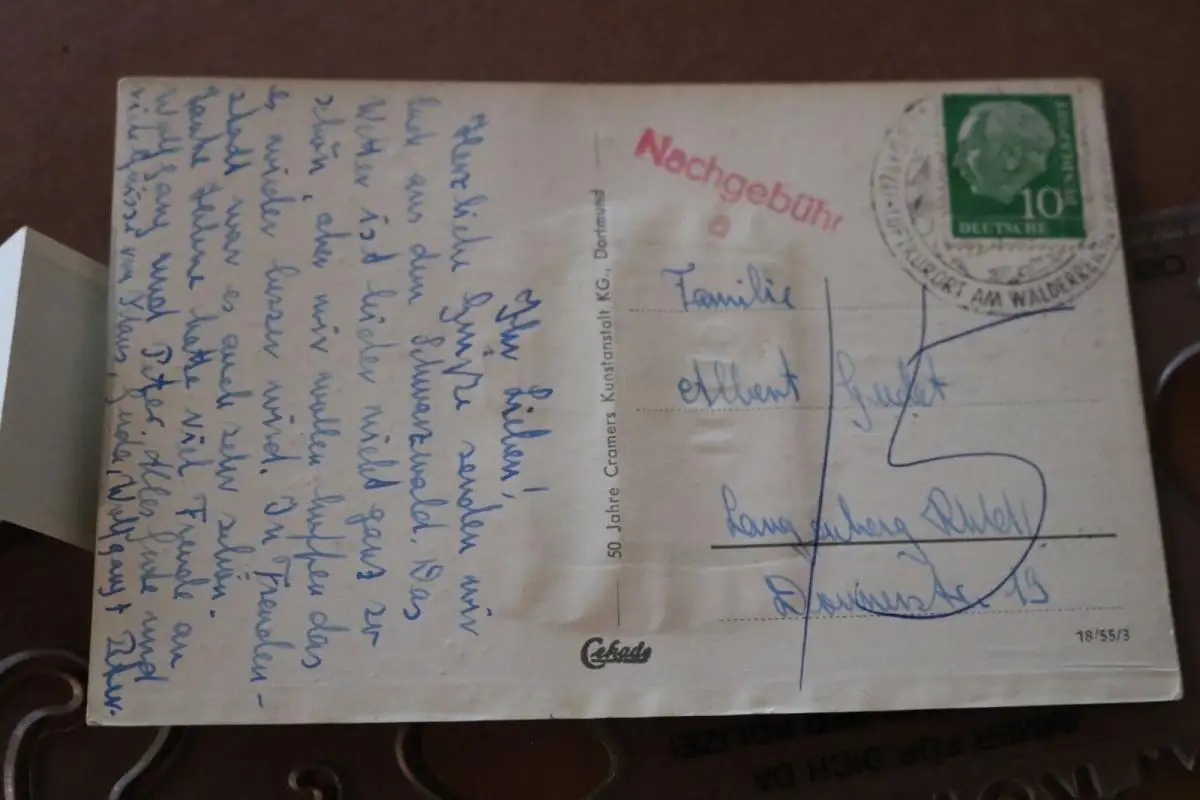 Ihr Lieben!
Herzliche Grüße senden wir
Euch aus dem Schwarzwald. Das
Wetter ist leider nicht ganz so
schön, aber wir wollen hoffen das
es wieder besser wird. In Freuden-
stadt war es auch sehr schön.
Tante hatte viel Freude an
Wolfgang und Peter. Alles Gute und
viele Grüße von Klaus, Wolfgang + Peter.
50 Jahre Cramers Kunstanstalt KG., Dortmund
Cekade
Nachgebühr
a
10
DEUTSCHE
BUNDESPOST
LUFTKURORT AM
Familie
Albert
Langenberg Rhld
19
15
18/55/3
IMMER FÜR DICH DA
POLIZEI